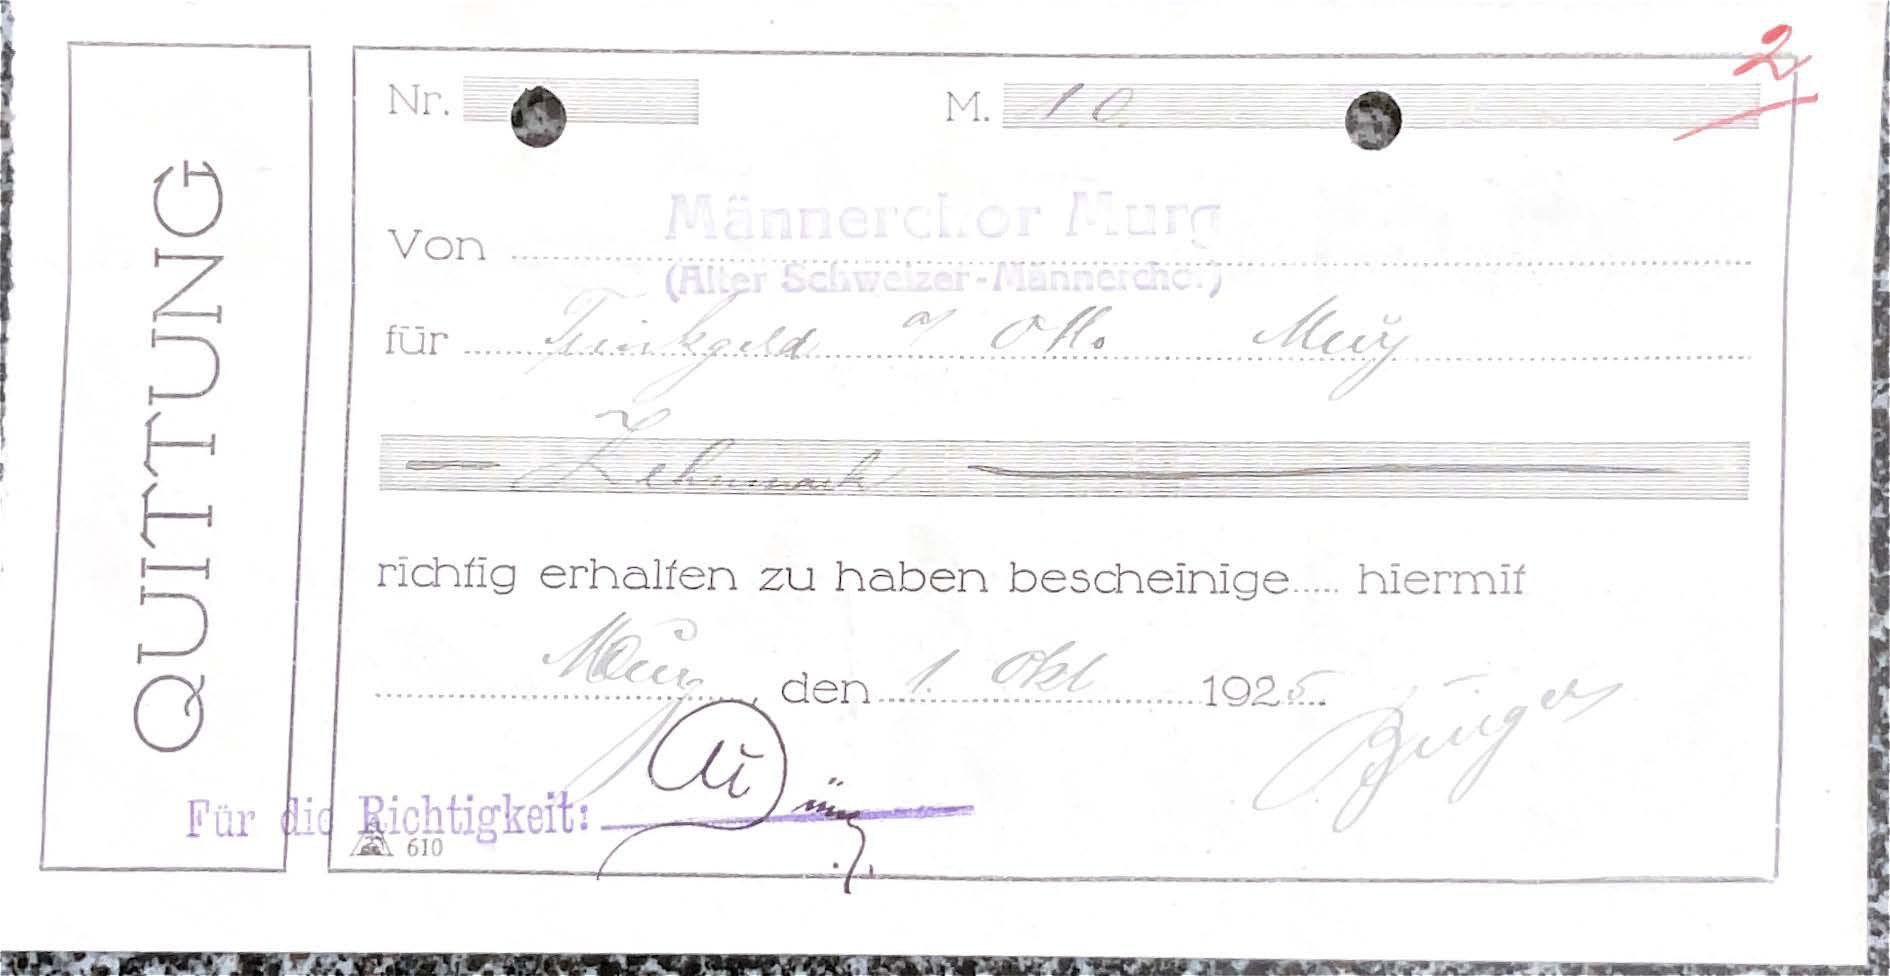 2
QUITTUNG
Nr. M. 10
Männerchor Murg
Von
(Alter Schweizer-Männercho.)
für Trinkgeld Murg
Zehnmark
richtig erhalten zu haben bescheinige..... hiermit
Murg, den 1. Okt 1925
Für die Richtigkeit:
610